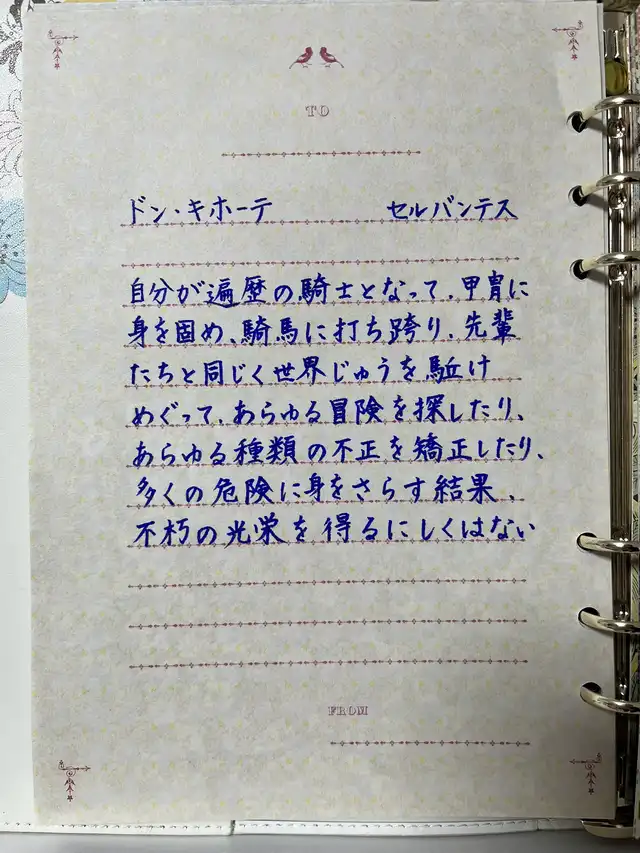 TO
ドン・キホーテ セルバンテス
自分が遍歴の騎士となって、甲冑に
身を固め、騎馬に打ち跨り、先輩
たちと同じく世界じゅうを駈け
めぐって、あらゆる冒険を探したり、
あらゆる種類の不正を矯正したり、
多くの危険に身をさらす結果、
不朽の光栄を得るにしくはない
FROM